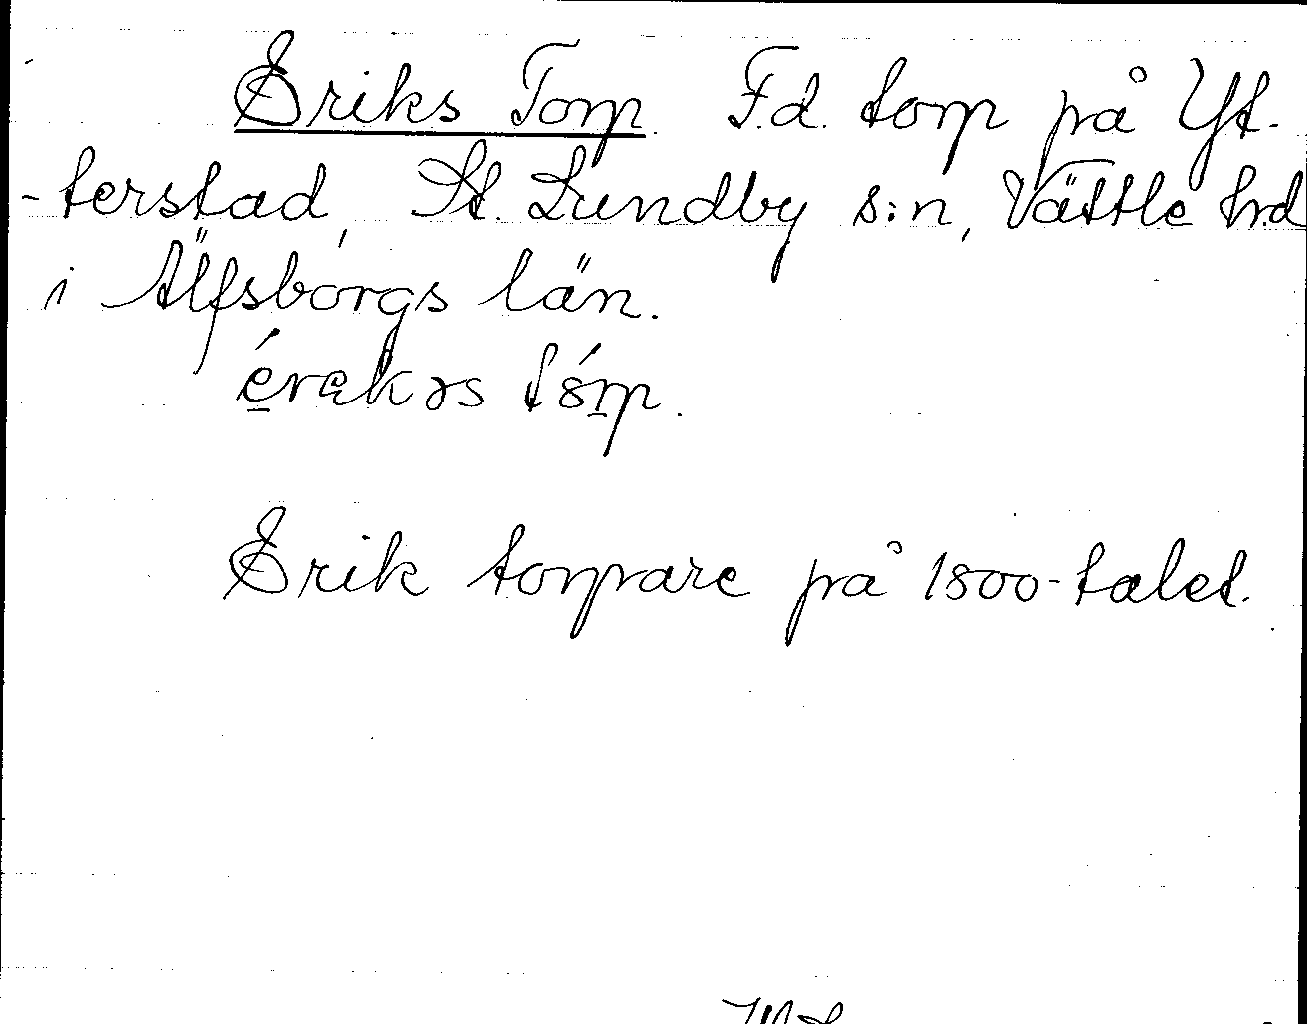 Eriks Torp. F.d. torp på Yt-
-terstad, St. Lundby s:n, Vättle hd
i Älfsborgs län.
érækəs tórp.
Erik torpare på 1800-talet.